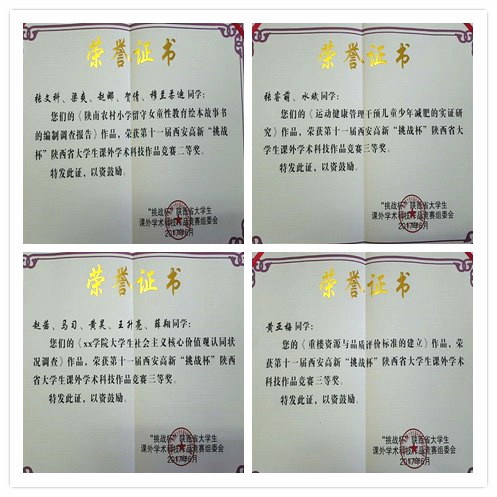 荣誉证书
张文科、梁爽、赵娜、智倩、穆兰
同学：
您们的《陕南农村小学留守女童性教育绘本故事书
的编制调查报告》作品，荣获第十一届西安高新“挑战
杯”陕西省大学生课外学术科技作品竞赛二等奖。
特发此证，以资鼓励。
“挑战杯”陕西省大学生
课外学术科技作品竞赛组委会
2017年6月
荣誉证书
张睿萌、水
同学：
您们的《运动健康管理干预儿童少年减肥的实证研
究》作品，荣获第十一届西安高新“挑战杯”陕西省大
学生课外学术科技作品竞赛三等奖。
特发此证，以资鼓励。
“挑战杯”陕西省大学生
课外学术科技作品竞赛组委会
2017年6月
荣誉证书
赵茜、马习、黄昊、王升亮、薛翔同学：
您们的《xx学院大学生社会主义核心价值观认同状
况调查》作品，荣获第十一届西安高新“挑战杯”陕西
省大学生课外学术科技作品竞赛三等奖。
特发此证，以资鼓励。
“挑战杯”陕西省大学生
课外学术科技作品竞赛组委会
2017年6月
荣誉证书
黄亚梅同学：
您们的《重楼资源与品质评价标准的建立》作品，荣
获第十一届西安高新“挑战杯”陕西省大学生课外学术
科技作品竞赛三等奖。
特发此证，以资鼓励。
“挑战杯”陕西省大学生
课外学术科技作品竞赛组委会
2017年6月